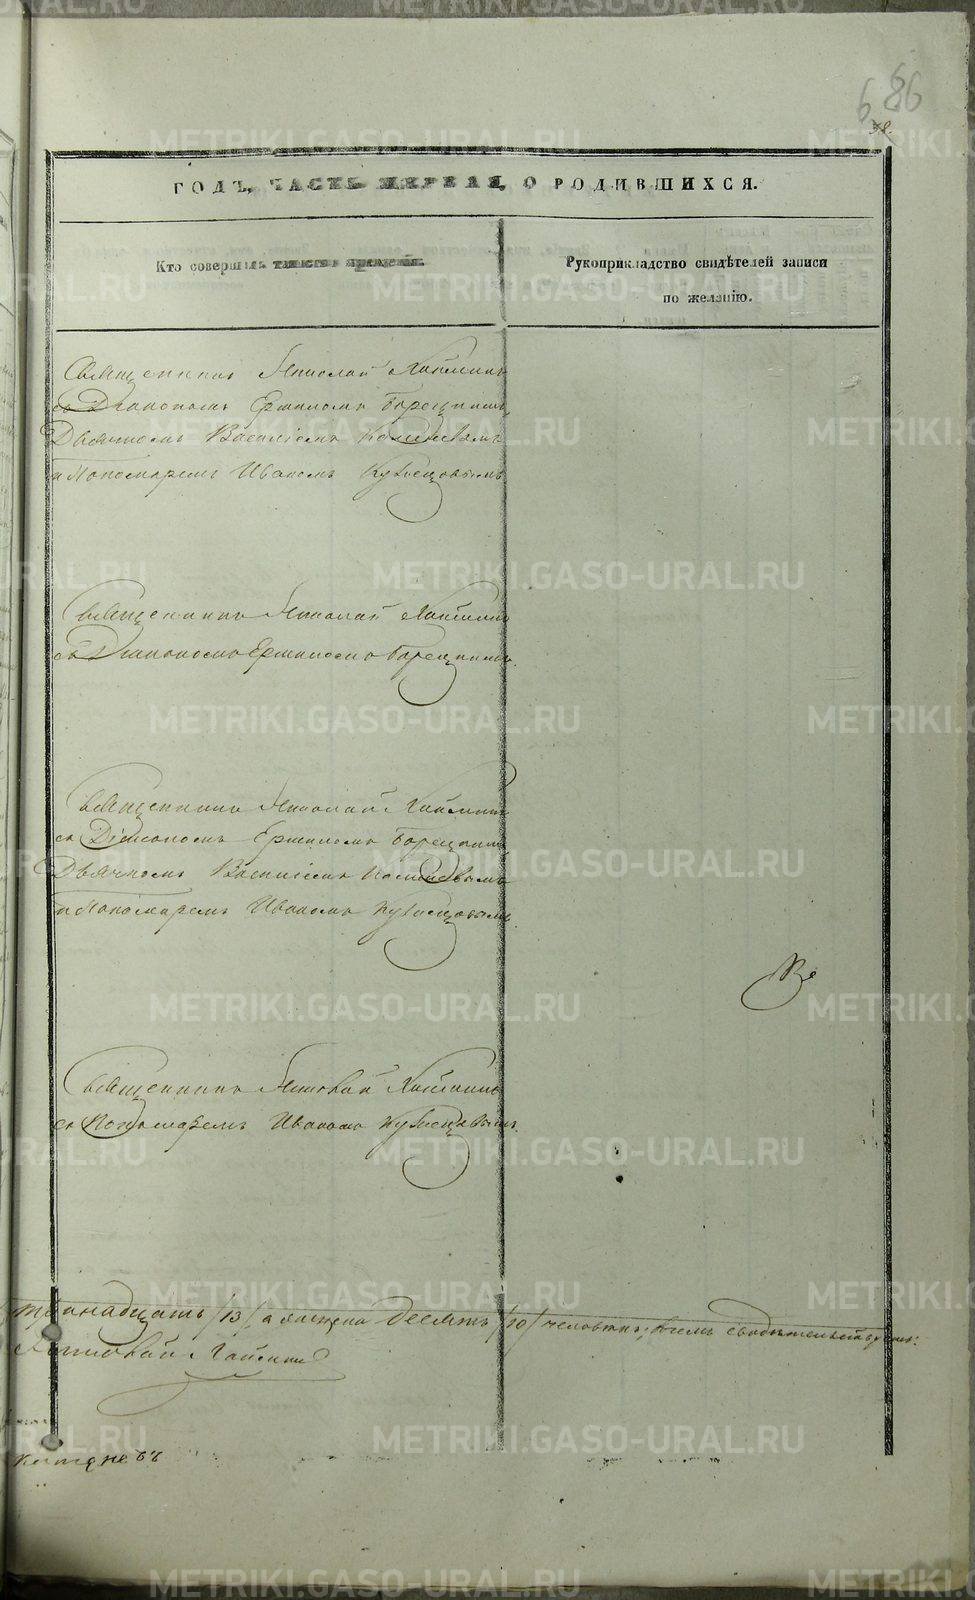 686
38.
ГОДЪ, ЧАСТЬ ПЕРВАЯ, О РОДИВШИХСЯ.
Кто совершалъ таинство крещенія.
Рукоприкладство свидѣтелей записи
по желанію.
Священникъ Николай
съ Діакономъ Ермиломъ Борецкимъ
Дьячкомъ Василіемъ
и Пономаремъ Иваномъ Кузнецовымъ
Священникъ Николай
съ Діакономъ Ермиломъ Борецкимъ.
Священникъ Николай
съ Діакономъ Ермиломъ Борецкимъ
Дьячкомъ Василіемъ
и Пономаремъ Иваномъ Кузнецовымъ
Священникъ Николай
съ Пономаремъ Иваномъ Кузнецовымъ.
тринадцать /13/, а женска десять /10/ человѣкъ; въ чемъ свидѣтельствуемъ:
METRIKI.GASO-URAL.RU